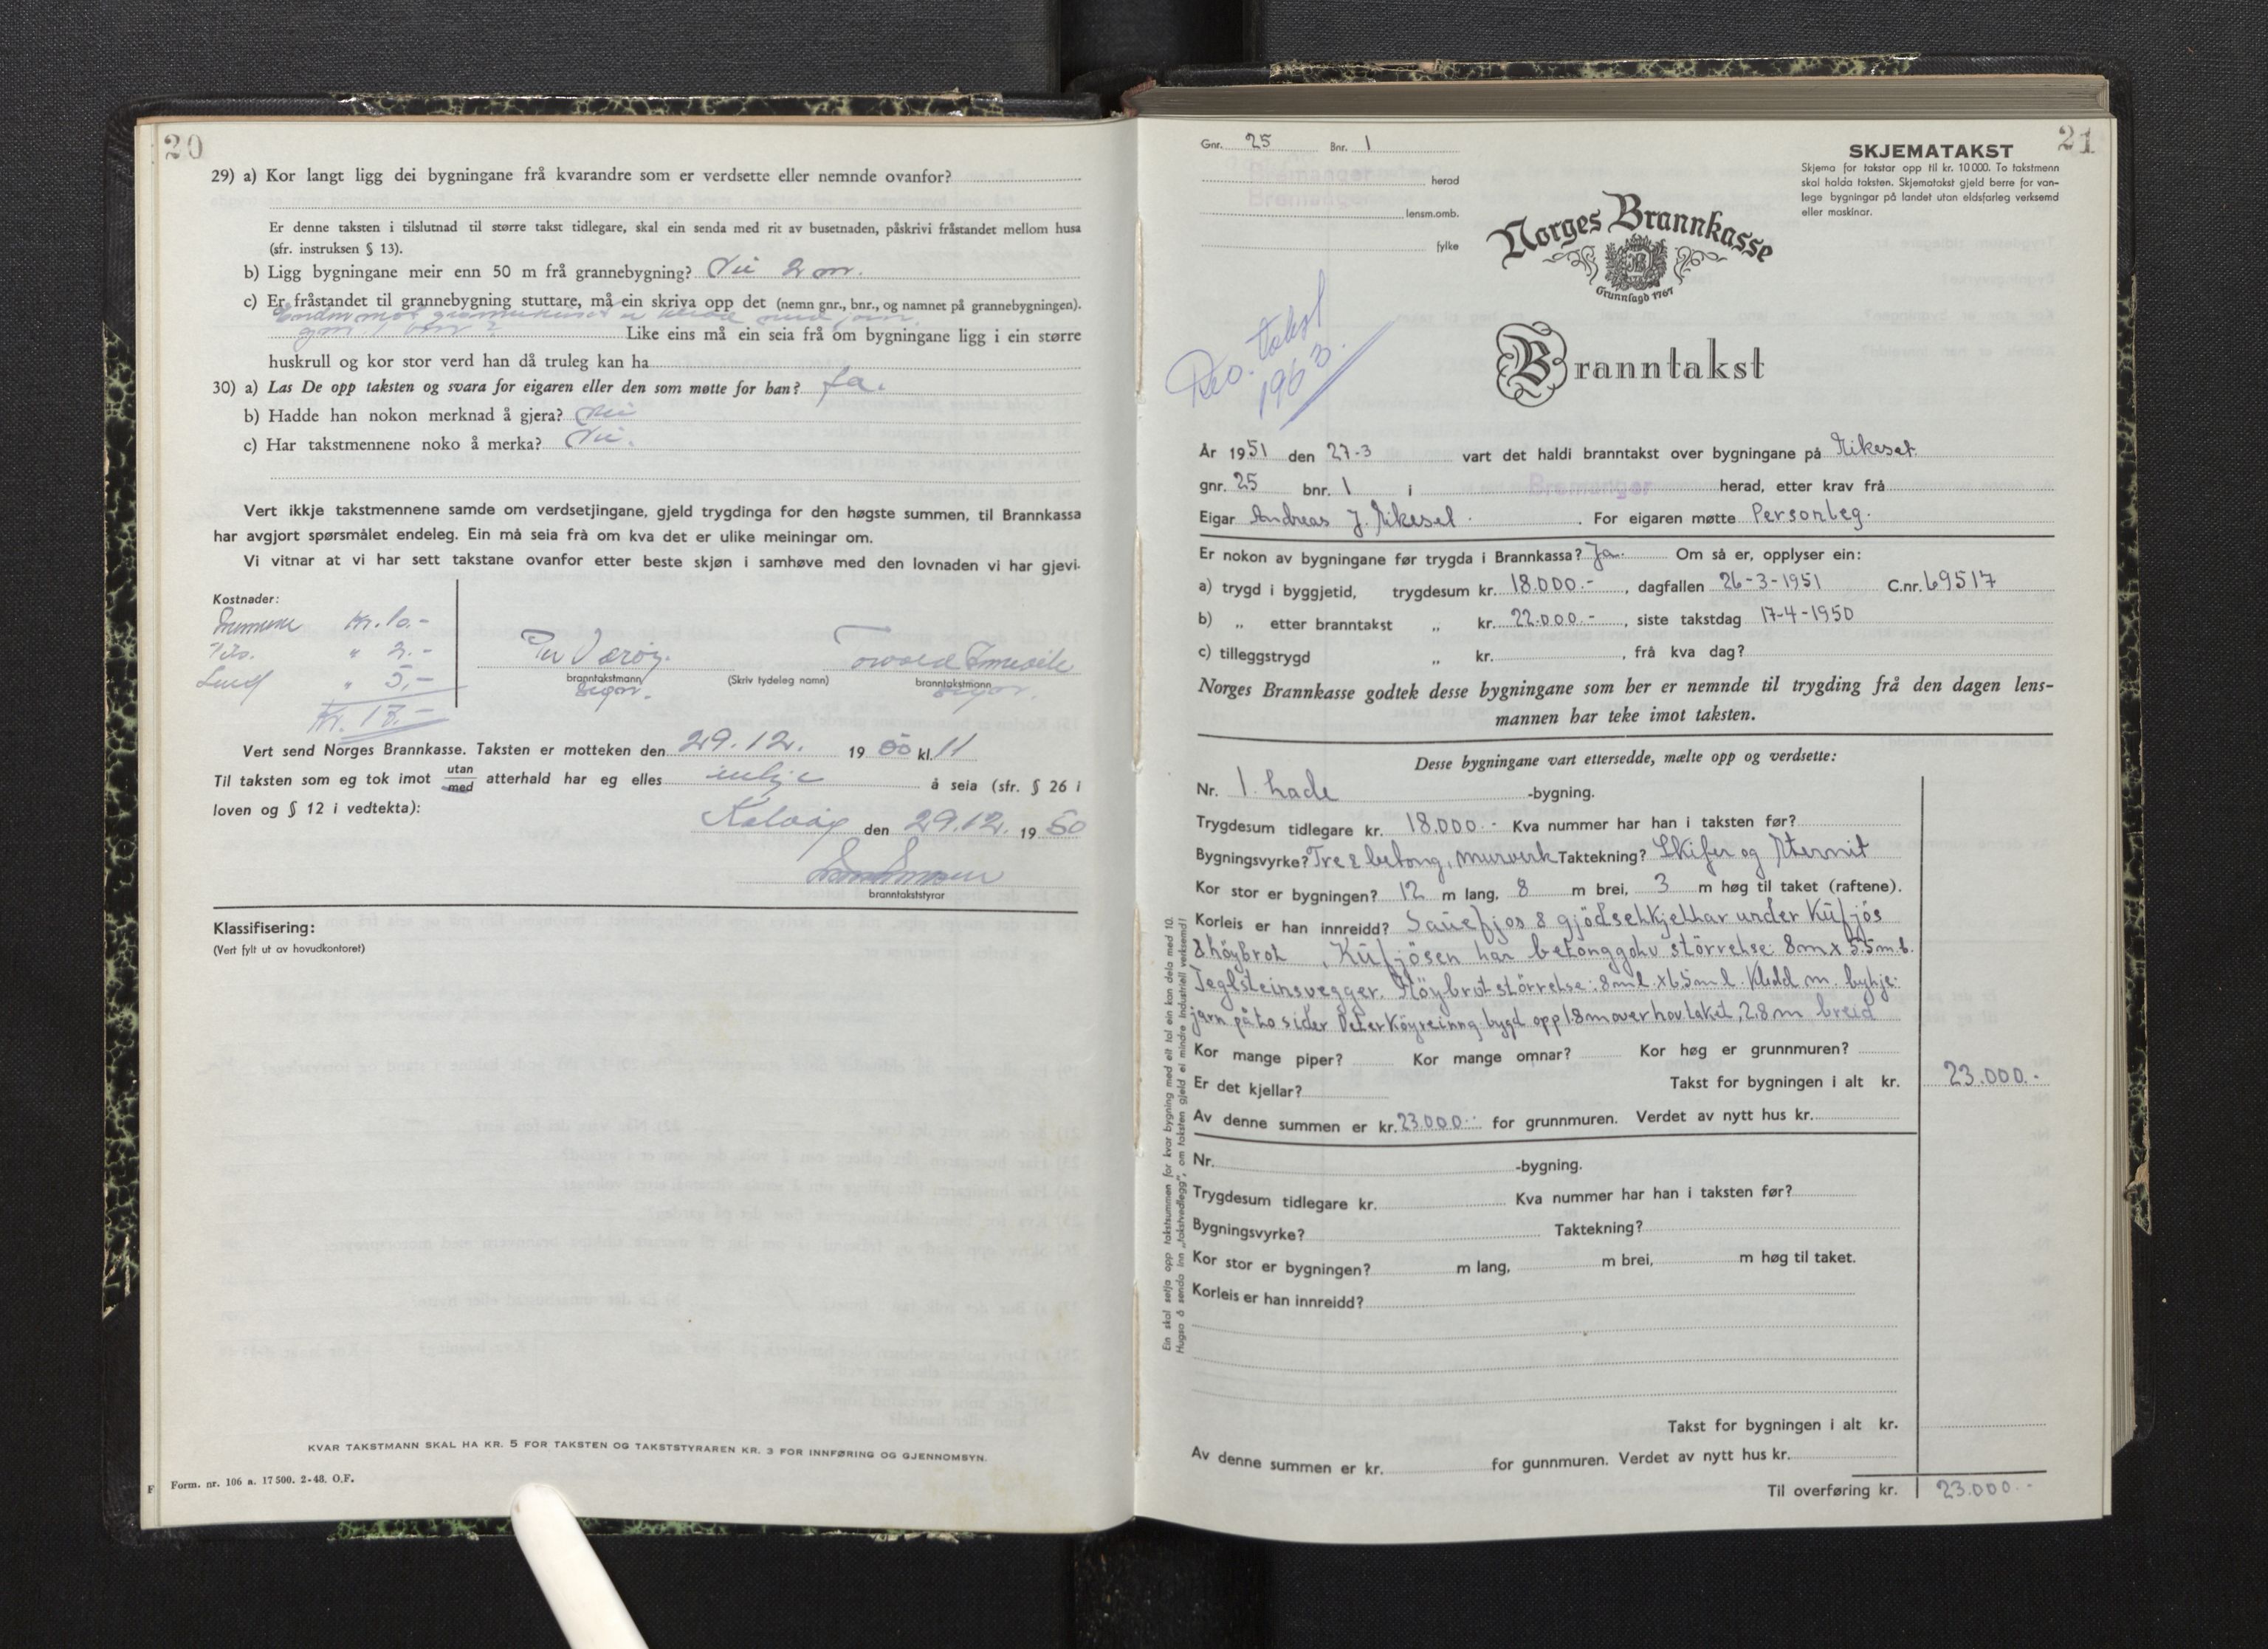 20
29) a) Kor langt ligg dei bygningane frå kvarandre som er verdsette eller nemnde ovanfor?
Er denne taksten i tilslutnad til større takst tidlegare, skal ein senda med rit av busetnaden, påskrivi fråstandet mellom husa
(sfr. instruksen § 13).
b) Ligg bygningane meir enn 50 m frå grannebygning? Nei 2 m.
c) Er fråstandet til grannebygning stuttare, må ein skriva opp det (nemn gnr., bnr., og namnet på grannebygningen).
Like eins må ein seia frå om bygningane ligg i ein større
huskrull og kor stor verd han då truleg kan ha
30) a) Las De opp taksten og svara for eigaren eller den som møtte for han? Ja.
b) Hadde han nokon merknad å gjera? Nei
c) Har takstmennene noko å merka? Nei.
Vert ikkje takstmennene samde om verdsetjingane, gjeld trygdinga for den høgste summen, til Brannkassa
har avgjort spørsmålet endeleg. Ein må seia frå om kva det er ulike meiningar om.
Vi vitnar at vi har sett takstane ovanfor etter beste skjøn i samhøve med den lovnaden vi har gjevi.
Kostnader:
Kr. 10.-
" 2.-
" 5,-
Kr. 17.-
branntakstmann
(Skriv tydeleg namn)
branntakstmann
Vert send Norges Brannkasse. Taksten er motteken den 29.12. 19 50 kl. 11
Til taksten som eg tok imot utan/med atterhald har eg elles inkje å seia (sfr. § 26 i
loven og § 12 i vedtekta):
Kalvåg den 29.12. 19 50
branntakststyrar
Klassifisering:
(Vert fylt ut av hovudkontoret)
KVAR TAKSTMANN SKAL HA KR. 5 FOR TAKSTEN OG TAKSTSTYRAREN KR. 3 FOR INNFØRING OG GJENNOMSYN.
F Form. nr. 106 a. 17 500. 2-48. O.F.
21
Gnr. 25 Bnr. 1
Bremanger herad
Bremanger lensm.omb.
fylke
SKJEMATAKST
Skjema for takstar opp til kr. 10 000. To takstmenn
skal halda taksten. Skjematakst gjeld berre for van-
lege bygningar på landet utan eldsfarleg verksemd
eller maskinar.
Norges Brannkasse
Grunnlagd 1767
takst
1963.
Branntakst
År 1951 den 27-3 vart det haldi branntakst over bygningane på Rikeset.
gnr. 25 bnr. 1 i Bremanger herad, etter krav frå
Eigar Andreas J. Rikeset. For eigaren møtte Personleg.
Er nokon av bygningane før trygda i Brannkassa? Ja. Om så er, opplyser ein:
a) trygd i byggjetid, trygdesum kr. 18.000.-, dagfallen 26-3-1951 C.nr. 69517
b) „ etter branntakst „ kr. 22.000.-, siste takstdag 17-4-1950
c) tilleggstrygd „ kr. , frå kva dag?
Norges Brannkasse godtek desse bygningane som her er nemnde til trygding frå den dagen lens-
mannen har teke imot taksten.
Desse bygningane vart ettersedde, mælte opp og verdsette:
Nr. 1. Lade -bygning.
Trygdesum tidlegare kr. 18.000.- Kva nummer har han i taksten før?
Bygningsvyrke? Tre & betong, murverk Taktekning? Skifer og Eternit
Kor stor er bygningen? 12 m lang, 8 m brei, 3 m høg til taket (raftene).
Korleis er han innreidd? Sauefjos & gjödselkjellar under Kufjös
& höybrot, Kufjösen har betonggolv större​lse: 8m x 5.5m b.
Teglsteinsvegger. Höybrot störrelse: 8m l. x 6.5m l. Kledd m. bylgje-
jarn på to sider. Det er Köyreinng bygd opp 1.8m over hov.taket, 2.8m breid
Kor mange piper? Kor mange omnar? Kor høg er grunnmuren?
Er det kjellar? Takst for bygningen i alt kr. 23.000.-
Av denne summen er kr. 23.000.- for grunnmuren. Verdet av nytt hus kr.
Nr. -bygning.
Trygdesum tidlegare kr. Kva nummer har han i taksten før?
Bygningsvyrke? Taktekning?
Kor stor er bygningen? m lang, m brei, m høg til taket.
Korleis er han innreidd?
Takst for bygningen i alt kr.
Av denne summen er kr. for gunnmuren. Verdet av nytt hus kr.
Til overføring kr. 23.000.-
Ein skal setja opp takstsummen for kvar bygning med eit tal ein kan dela med 10.
Hugsa å senda inn „takstvedlegg", om taksten gjeld ei mindre industriell verksemd!